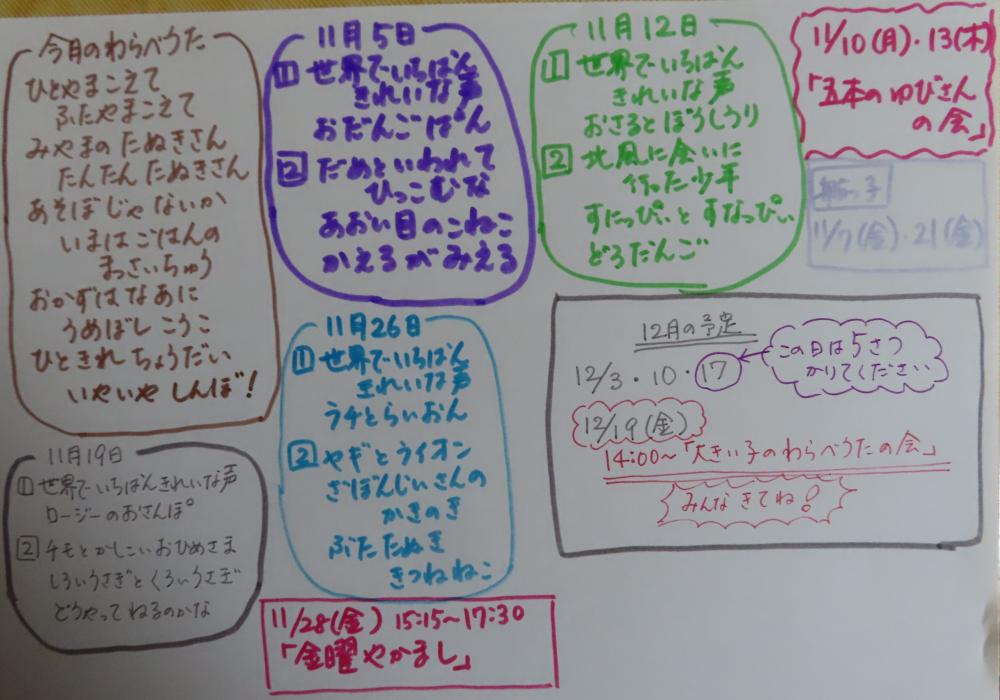 今月のわらべうた
ひとやまこえて
ふたやまこえて
みやまの たぬきさん
たんたん たぬきさん
あそぼじゃ ないか
いまは ごはんの
まっさいちゅう
おかずは なあに
うめぼし こうこ
ひときれ ちょうだい
いやいや しんぼ!
11月5日
① 世界でいちばん
きれいな声
おだんごぱん
② だめといわれて
ひっこむな
あおい目のこねこ
かえるがみえる
11月12日
① 世界でいちばん
きれいな声
おさるとぼうしうり
② 北風に会いに
行った少年
すにっぴぃと すなっぴぃ
どろだんご
11/10(月)・13(木)
「五本のゆびさん
の会」
っ子
11/7(金)・21(金)
11月19日
① 世界でいちばんきれいな声
ロージーのおさんぽ
② チモとかしこいおひめさま
しろいうさぎと くろいうさぎ
どうやって ねるのかな
11月26日
① 世界でいちばん
きれいな声
ラチとらいおん
② ヤギとライオン
さぼんじいさんの
かきのき
ぶた たぬき
きつね ねこ
11/28(金) 15:15〜17:30
「金曜やかまし」
12月の予定
12/3・10・17
この日は5さつ
かりてください
12/19(金)
14:00〜「大きい子のわらべうたの会」
みんな きてね!